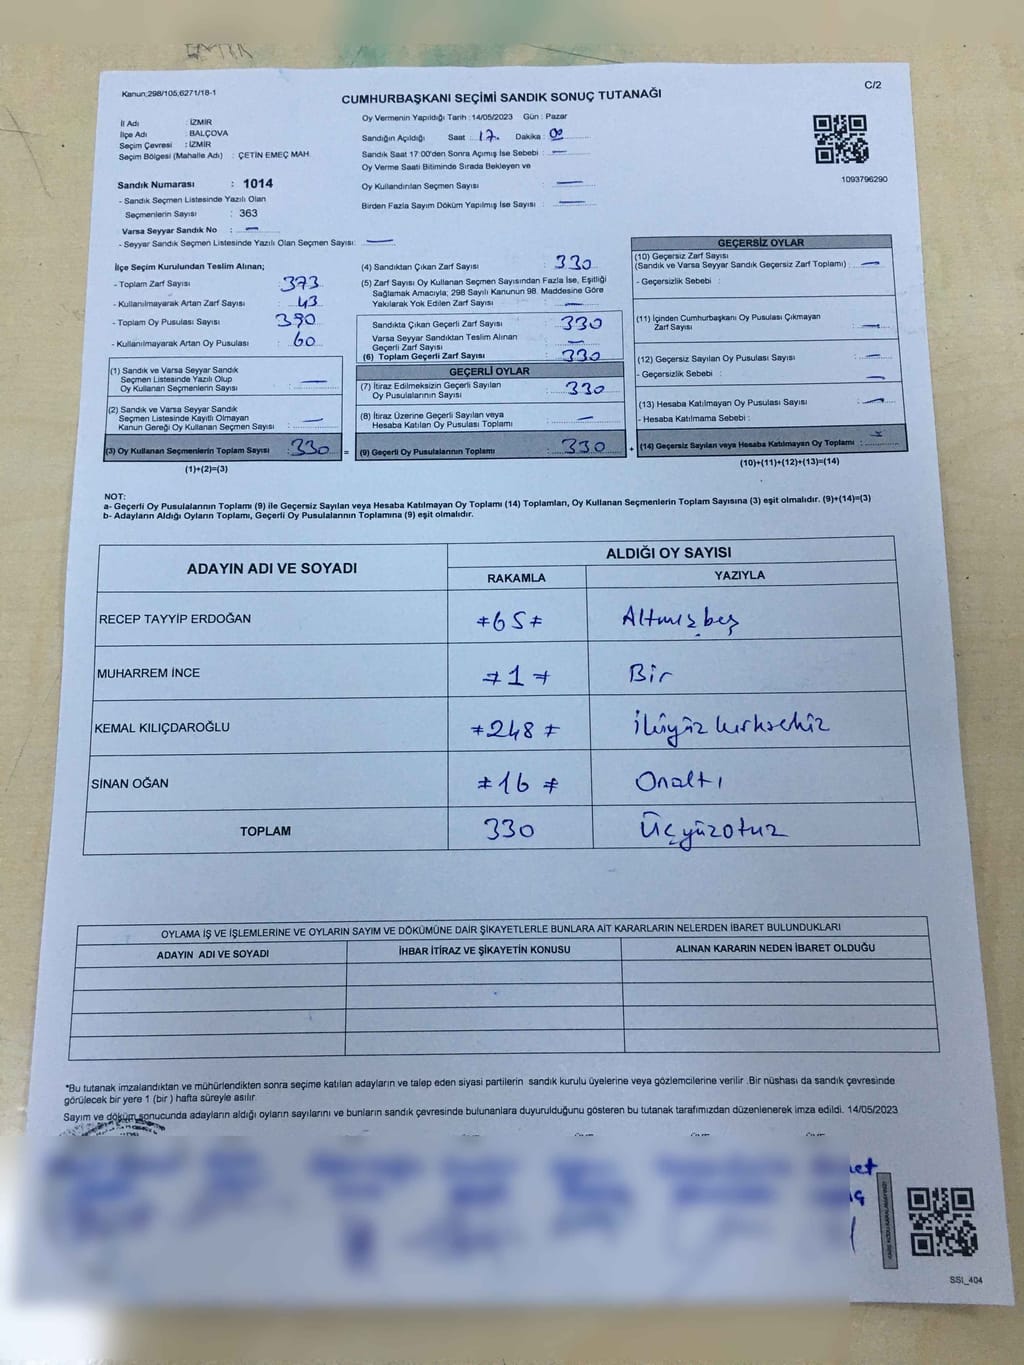 Kanun;298/105,6271/18-1
C/2
CUMHURBAŞKANI SEÇİMİ SANDIK SONUÇ TUTANAĞI
İl Adı : İZMİR
İlçe Adı : BALÇOVA
Seçim Çevresi : İZMİR
Seçim Bölgesi (Mahalle Adı) : ÇETİN EMEÇ MAH.
Oy Vermenin Yapıldığı Tarih : 14/05/2023 Gün : Pazar
Sandığın Açıldığı Saat : 17 Dakika : 00
Sandık Saat 17:00'den Sonra Açımış İse Sebebi : —
Oy Verme Saati Bitiminde Sırada Bekleyen ve
Oy Kullandırılan Seçmen Sayısı —
Birden Fazla Sayım Döküm Yapılmış İse Sayısı : —
1093796290
Sandık Numarası : 1014
- Sandık Seçmen Listesinde Yazılı Olan
Seçmenlerin Sayısı : 363
Varsa Seyyar Sandık No : —
- Seyyar Sandık Seçmen Listesinde Yazılı Olan Seçmen Sayısı: —
İlçe Seçim Kurulundan Teslim Alınan;
- Toplam Zarf Sayısı : 373
- Kullanılmayarak Artan Zarf Sayısı : 43
- Toplam Oy Pusulası Sayısı : 390
- Kullanılmayarak Artan Oy Pusulası : 60
(1) Sandık ve Varsa Seyyar Sandık
Seçmen Listesinde Yazılı Olup
Oy Kullanan Seçmenlerin Sayısı : —
(2) Sandık ve Varsa Seyyar Sandık
Seçmen Listesinde Kayıtlı Olmayan
Kanun Gereği Oy Kullanan Seçmen Sayısı : —
(3) Oy Kullanan Seçmenlerin Toplam Sayısı : 330 =
(1)+(2)=(3)
(4) Sandıktan Çıkan Zarf Sayısı : 330
(5) Zarf Sayısı Oy Kullanan Seçmen Sayısından Fazla İse, Eşitliği
Sağlamak Amacıyla; 298 Sayılı Kanunun 98. Maddesine Göre
Yakılarak Yok Edilen Zarf Sayısı : —
Sandıkta Çıkan Geçerli Zarf Sayısı : 330
Varsa Seyyar Sandıktan Teslim Alınan
Geçerli Zarf Sayısı : —
(6) Toplam Geçerli Zarf Sayısı : 330
GEÇERLİ OYLAR
(7) İtiraz Edilmeksizin Geçerli Sayılan
Oy Pusulalarının Sayısı : 330
(8) İtiraz Üzerine Geçerli Sayılan veya
Hesaba Katılan Oy Pusulası Toplamı : —
(9) Geçerli Oy Pusulalarının Toplamı : 330 +
GEÇERSİZ OYLAR
(10) Geçersiz Zarf Sayısı
(Sandık ve Varsa Seyyar Sandık Geçersiz Zarf Toplamı) : —
- Geçersizlik Sebebi :
(11) İçinden Cumhurbaşkanı Oy Pusulası Çıkmayan
Zarf Sayısı : —
(12) Geçersiz Sayılan Oy Pusulası Sayısı : —
- Geçersizlik Sebebi : —
(13) Hesaba Katılmayan Oy Pusulası Sayısı : —
- Hesaba Katılmama Sebebi :
(14) Geçersiz Sayılan veya Hesaba Katılmayan Oy Toplamı :
(10)+(11)+(12)+(13)=(14)
NOT:
a- Geçerli Oy Pusulalarının Toplamı (9) ile Geçersiz Sayılan veya Hesaba Katılmayan Oy Toplamı (14) Toplamları, Oy Kullanan Seçmenlerin Toplam Sayısına (3) eşit olmalıdır. (9)+(14)=(3)
b- Adayların Aldığı Oyların Toplamı, Geçerli Oy Pusulalarının Toplamına (9) eşit olmalıdır.
ADAYIN ADI VE SOYADI
ALDIĞI OY SAYISI
RAKAMLA YAZIYLA
RECEP TAYYİP ERDOĞAN ≠65≠ Altmışbeş
MUHARREM İNCE ≠1≠ Bir
KEMAL KILIÇDAROĞLU ≠248≠ İkiyüz kırksekiz
SİNAN OĞAN ≠16≠ Onaltı
TOPLAM 330 Üçyüzotuz
OYLAMA İŞ VE İŞLEMLERİNE VE OYLARIN SAYIM VE DÖKÜMÜNE DAİR ŞİKAYETLERLE BUNLARA AİT KARARLARIN NELERDEN İBARET BULUNDUKLARI
ADAYIN ADI VE SOYADI İHBAR İTİRAZ VE ŞİKAYETİN KONUSU ALINAN KARARIN NEDEN İBARET OLDUĞU
*Bu tutanak imzalandıktan ve mühürlendikten sonra seçime katılan adayların ve talep eden siyasi partilerin sandık kurulu üyelerine veya gözlemcilerine verilir .Bir nüshası da sandık çevresinde
görülecek bir yere 1 (bir ) hafta süreyle asılır.
Sayım ve döküm sonucunda adayların aldığı oyların sayılarını ve bunların sandık çevresinde bulunanlara duyurulduğunu gösteren bu tutanak tarafımızdan düzenlenerek imza edildi. 14/05/2023
SSI_404